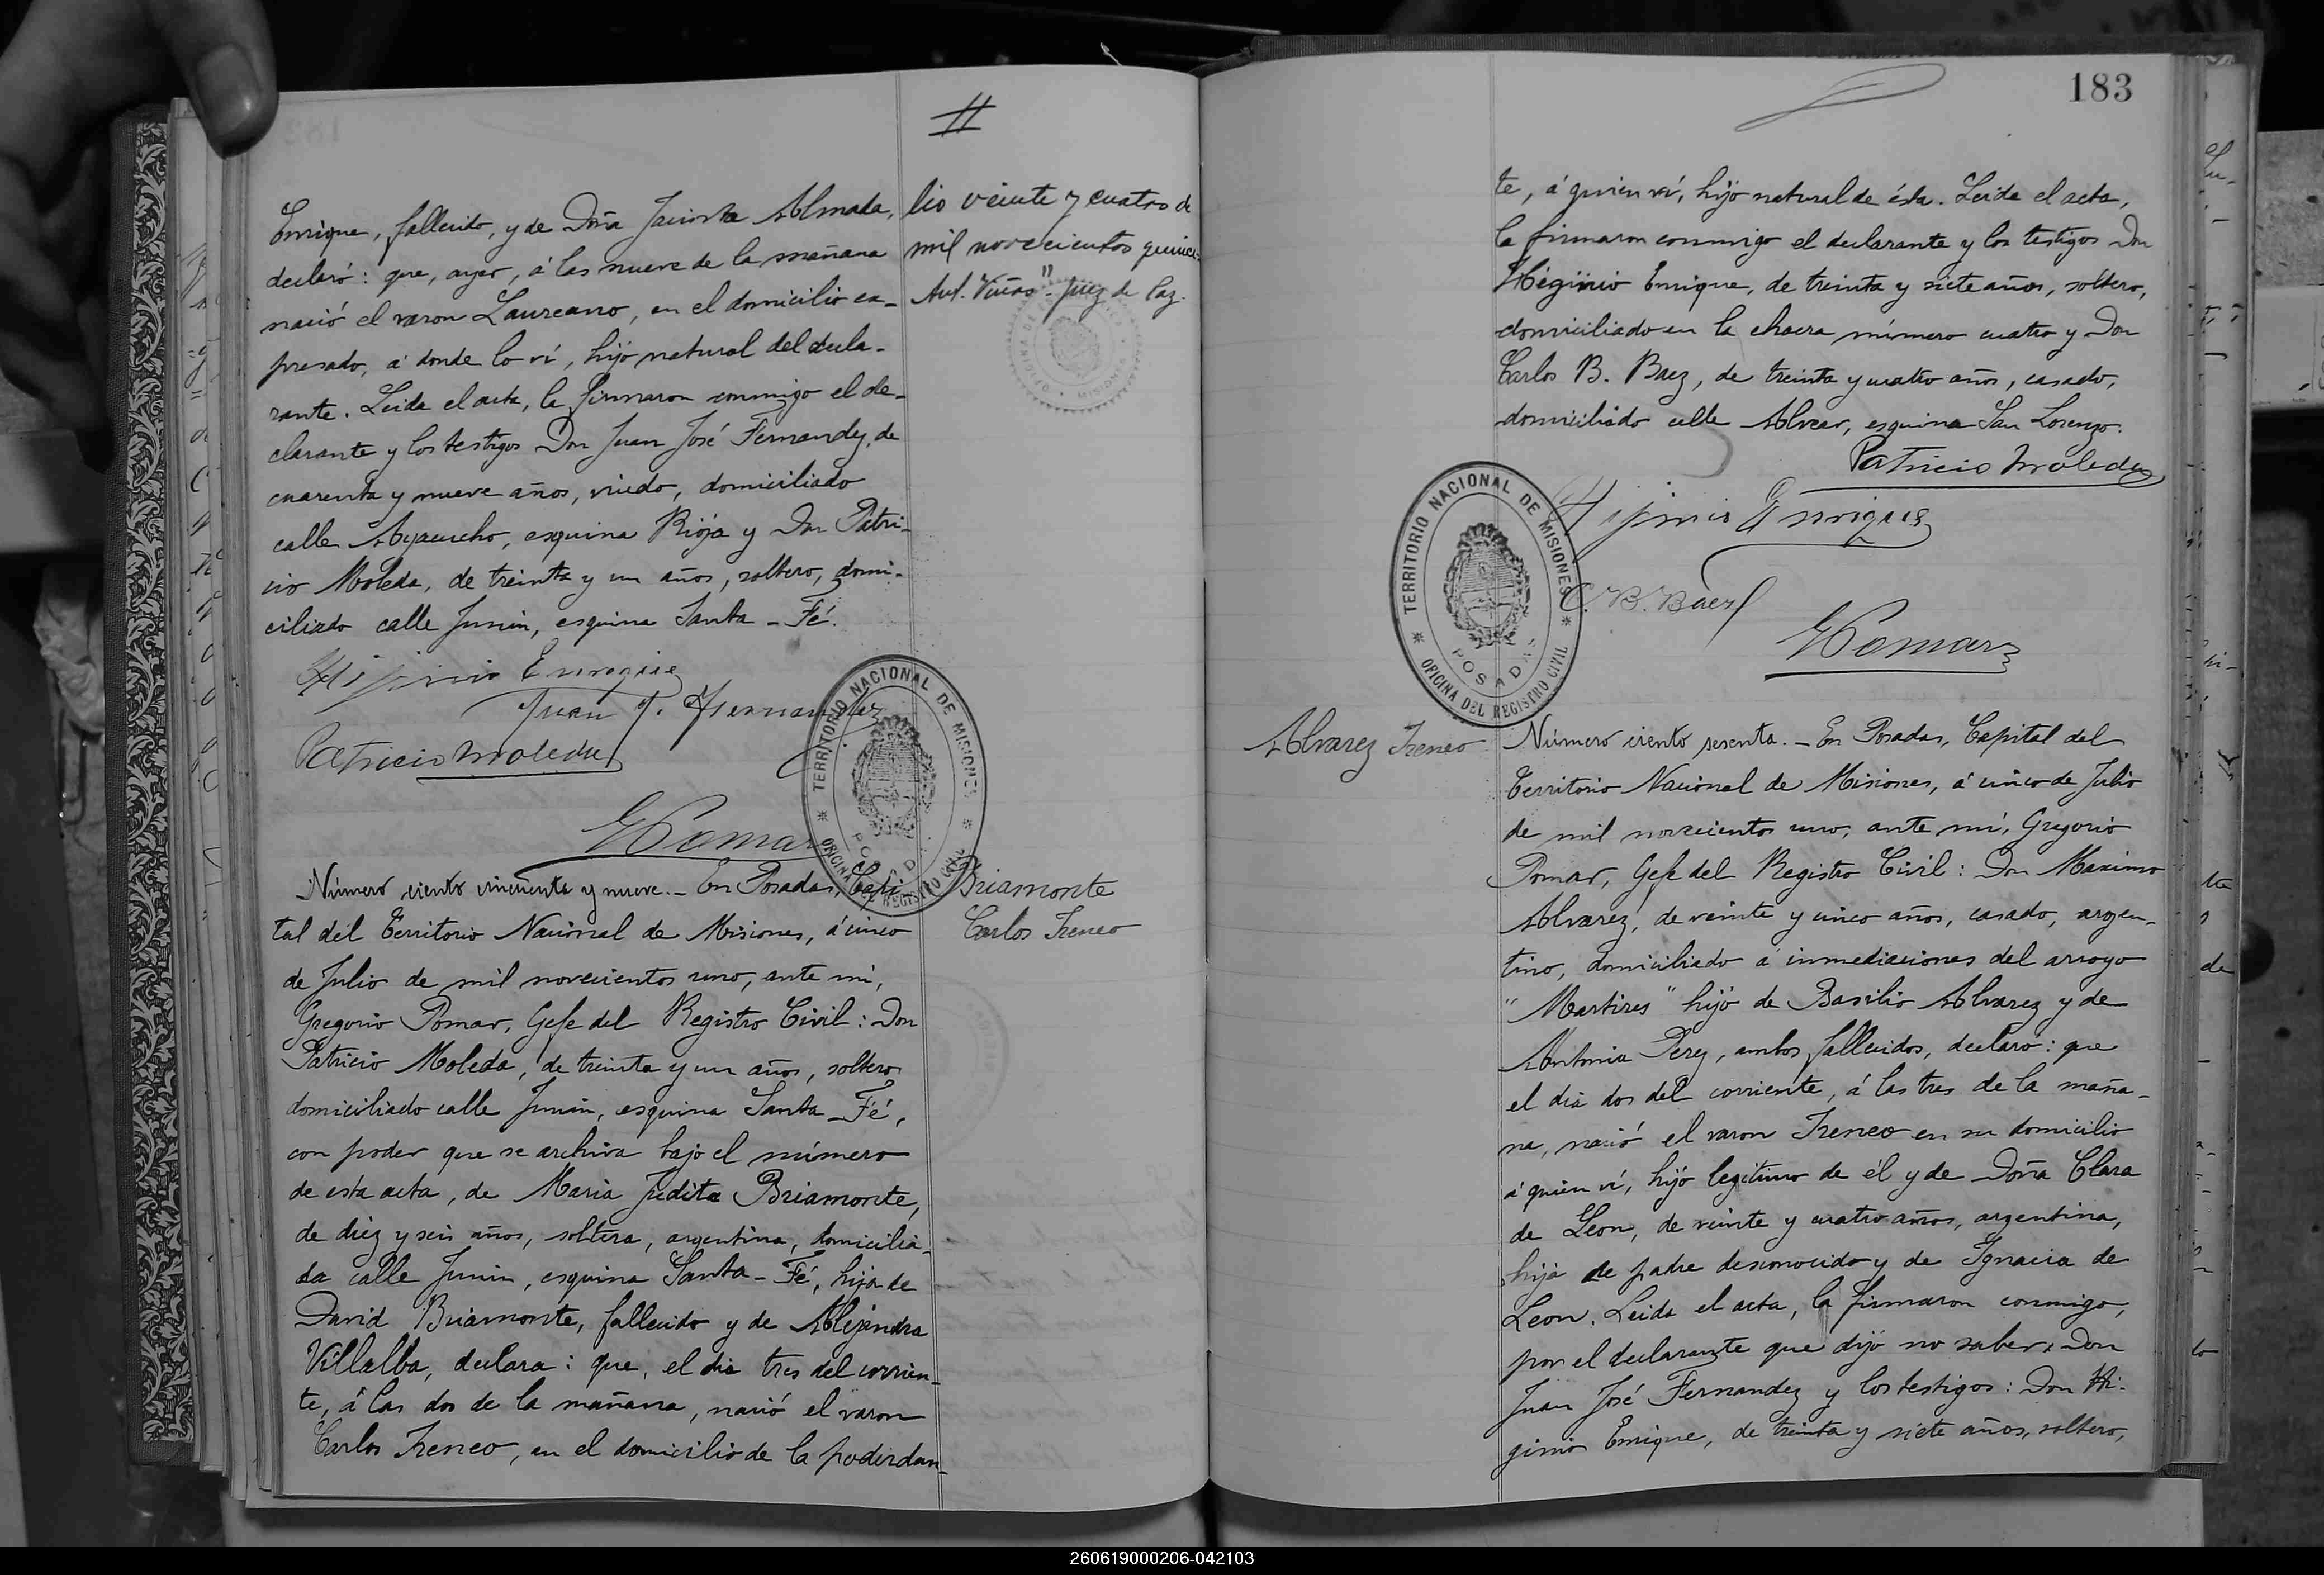 Enrique, fallecido, y de Doña Jacinta Almada,
declaró: que, ayer, á las nueve de la mañana
nació el varon Laureano, en el domicilio ex-
presado, á donde lo ví, hijo natural del decla-
rante. Leida el acta, la firmaron conmigo el de-
clarante y los testigos Don Juan José Fernandez, de
cuarenta y nueve años, viudo, domiciliado
calle Ayacucho, esquina Rioja y Don Patri-
cio Moleda, de treinta y un años, soltero, domi-
ciliado calle Junin, esquina Santa-Fé.
Hijinio Enrique
Juan J. Fernandez
Patricio Moleda
GPomar
TERRITORIO NACIONAL DE MISIONES
POSADAS
OFICINA DEL REGISTRO CIVIL
lio veinte y cuatro de
mil novecientos quince.
Ant. Viñas" Juez de Paz.
MISIONES
Número ciento cincuenta y nueve.- En Posadas, Capi-
tal del Territorio Nacional de Misiones, á cinco
de Julio de mil novecientos uno, ante mi,
Gregorio Pomar, Gefe del Registro Civil: Don
Patricio Moleda, de treinta y un años, soltero
domiciliado calle Junin, esquina Santa-Fé,
con poder que se archiva bajo el número
de esta acta, de Maria Judita Briamonte,
de diez y seis años, soltera, argentina, domicilia-
da calle Junin, esquina Santa-Fé, hija de
David Briamonte, fallecido y de Alejandra
Villalba, declara: que, el dia tres del corrien-
te, á las dos de la mañana, nació el varon
Carlos Ireneo, en el domicilio de la poderdan-
Briamonte
Carlos Ireneo
183
te, á quien ví, hijo natural de ésta. Leida el acta,
la firmaron conmigo el declarante y los testigos Don
Higinio Enrique, de treinta y siete años, soltero,
domiciliado en la chacra número cuatro y Don
Carlos B. Baez, de treinta y cuatro años, casado,
domiciliado calle Alvear, esquina San Lorenzo.
Patricio Moleda
Hijinio Enrique
C. B. Baez
GPomar
TERRITORIO NACIONAL DE MISIONES
POSADAS
OFICINA DEL REGISTRO CIVIL
Alvarez Ireneo
Número ciento sesenta.- En Posadas, Capital del
Territorio Nacional de Misiones, á cinco de Julio
de mil novecientos uno, ante mi, Gregorio
Pomar, Gefe del Registro Civil: Don Maximo
Alvarez, de veinte y cinco años, casado, argen-
tino, domiciliado á inmediaciones del arroyo
"Martires" hijo de Basilio Alvarez y de
Antonia Perez, ambos fallecidos, declaró: que
el dia dos del corriente, á las tres de la maña-
na, nació el varon Ireneo en su domicilio
á quien ví, hijo legitimo de él y de Doña Clara
de Leon, de veinte y cuatro años, argentina,
hija de padre desconocido y de Ignacia de
Leon. Leida el acta, la firmaron conmigo,
por el declarante que dijo no saber, Don
Juan José Fernandez y los testigos: Don Hi-
ginio Enrique, de treinta y siete años, soltero,
260619000206-042103